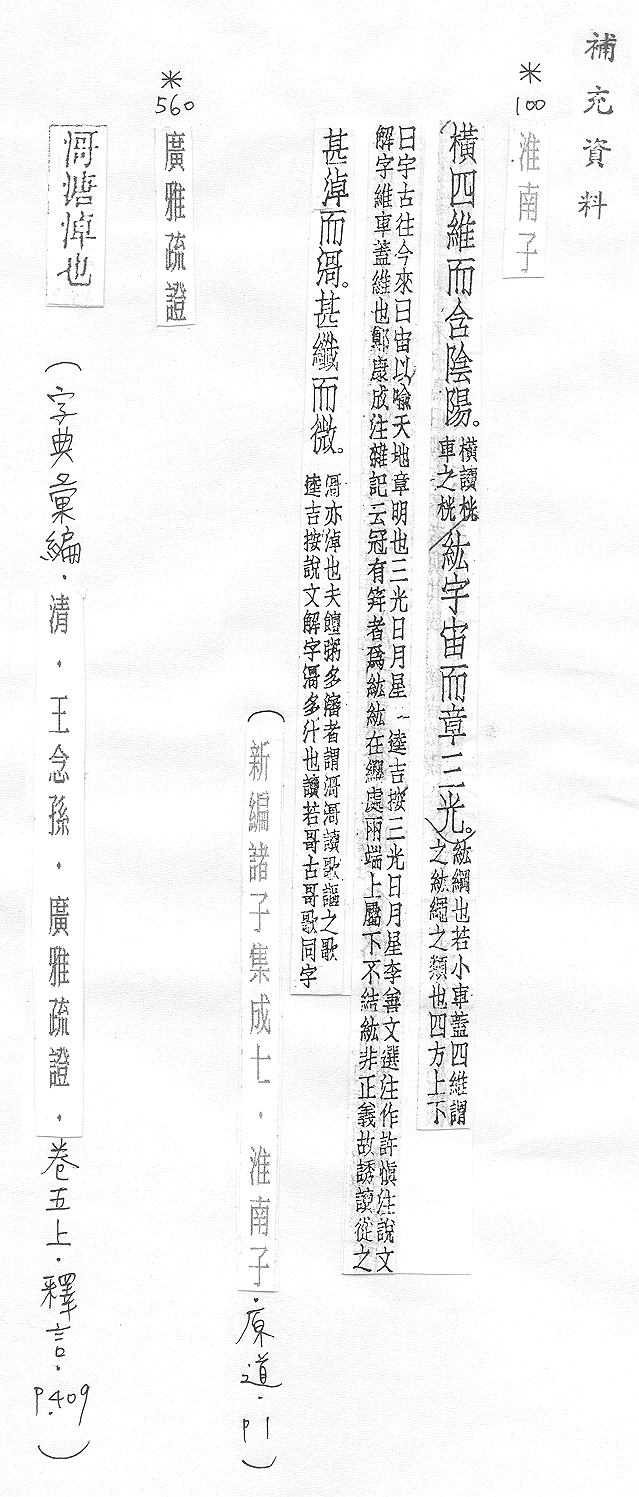 補充資料
*
100
淮南子
橫四維而含陰陽。橫讀桄
車之桄紘宇宙而章三光。紘綱也若小車蓋四維謂
之紘繩之類也四方上下
曰宇古往今來曰宙以喻天地章明也三光日月星 逵吉按三光日月星李善文選注作許愼注說文
解字維車蓋維也鄭康成注雜記云冠有笄者爲紘紘在纓處兩端上屬下不結紘非正義故誘讀從之
甚淖而滒。甚纖而微。滒亦淖也夫饘粥多瀋者謂滒滒讀歌謳之歌
逵吉按說文解字滒多汁也讀若哥古哥歌同字
(新編諸子集成七·淮南子·原道·P1)
*
560
廣雅疏證
滒溏淖也
(字典彙編·清·王念孫·廣雅疏證·卷五上·釋言·P.409)